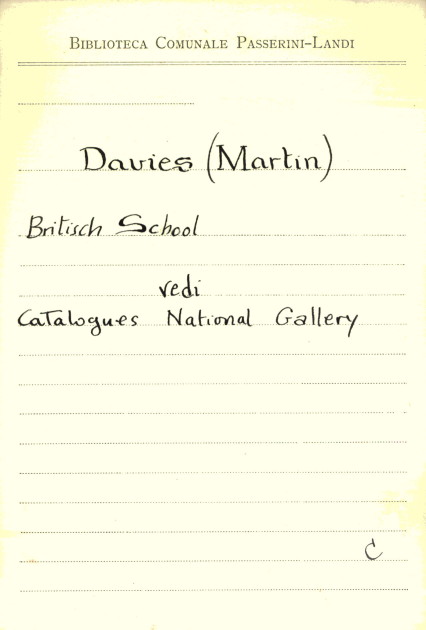 Biblioteca Comunale Passerini-Landi
Davies (Martin)
Britisch School
vedi
Catalogues National Gallery
C